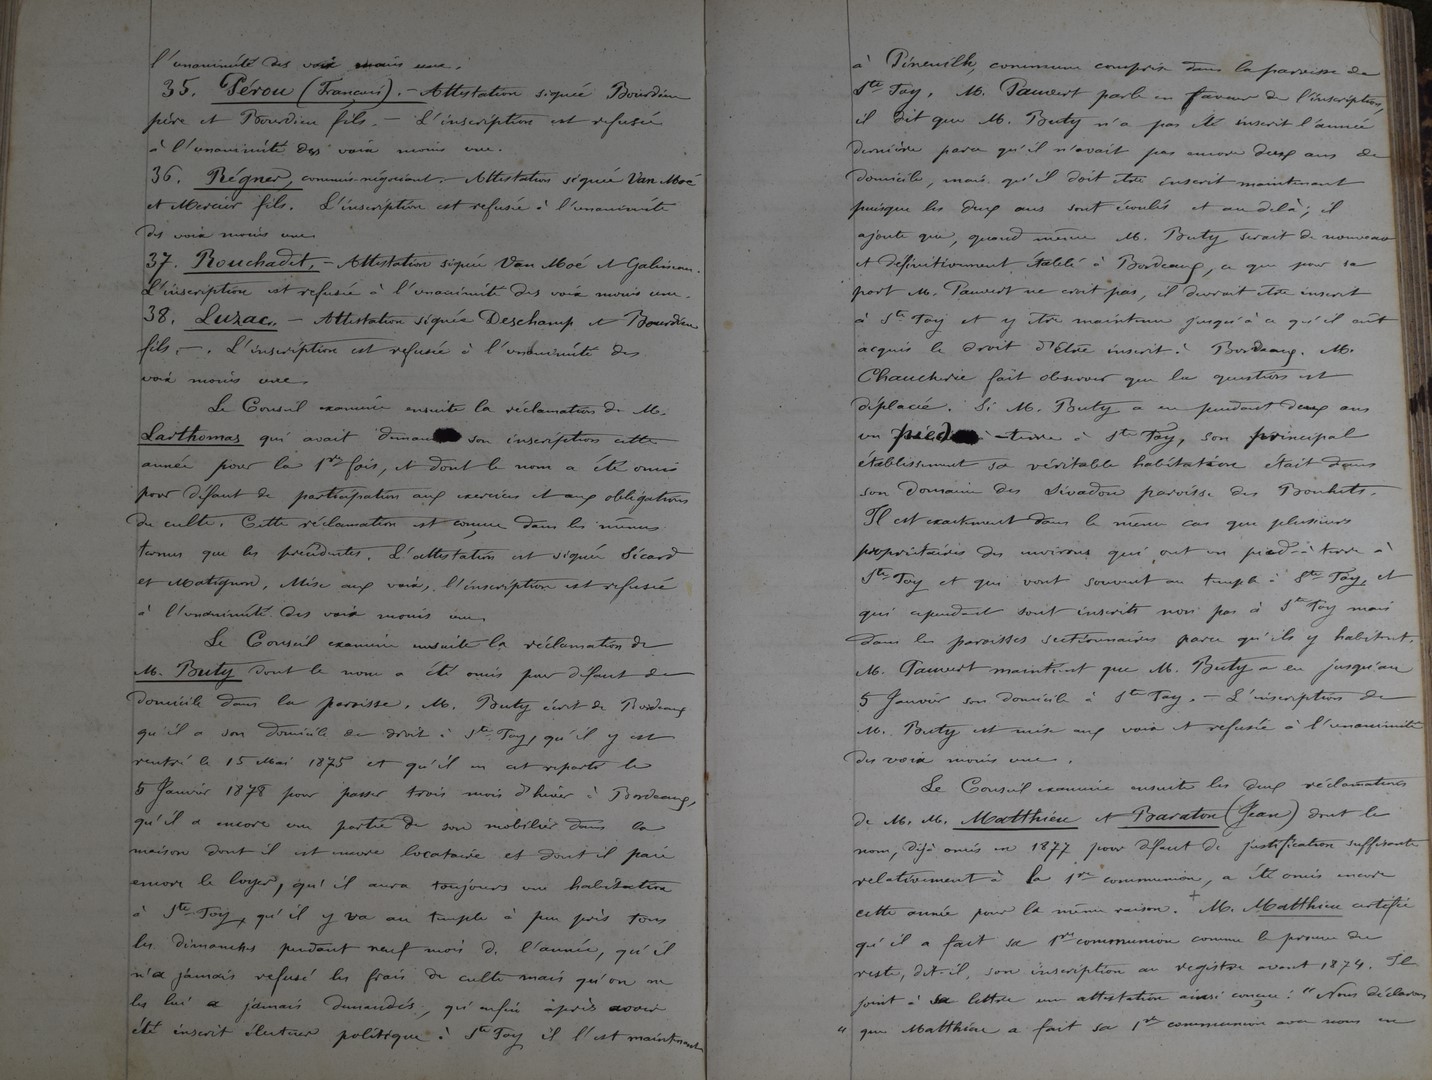 l'unanimité des voix moins une.
35. Pérou (François). – Attestation signée Bourdieu
père et Bourdieu fils. – L'inscription est refusée
à l'unanimité des voix moins une.
36. Régner, commis-négociant. – Attestation signée Van Moé
et Mercier fils. L'inscription est refusée à l'unanimité
des voix moins une.
37. Rouchadet, – Attestation signée Van Moé et Galineau.
L'inscription est refusée à l'unanimité des voix moins une.
38. Luzac. – Attestation signée Deschamp et Bourdieu
fils. – . L'inscription est refusée à l'unanimité des
voix moins une.
Le Conseil examine ensuite la réclamation de M.
Larthomas qui avait son inscription cette
année pour la 1re fois, et dont le nom a été omis
pour défaut de participation aux exercices et aux obligations
du culte. Cette réclamation est conçue dans les mêmes
termes que les précédentes. L'attestation est signée Sicard
et Matignon. Mise aux voix, l'inscription est refusée
à l'unanimité des voix moins une.
Le Conseil examine ensuite la réclamation de
M. Buty dont le nom a été omis pour défaut de
domicile dans la paroisse. M. Buty écrit de Bordeaux
qu'il a son domicile de droit à Ste Foy, qu'il y est
rentré le 15 Mai 1875 et qu'il en est reparti le
5 Janvier 1878 pour passer trois mois d'hiver à Bordeaux,
qu'il a encore une partie de son mobilier dans la
maison dont il est encore locataire et dont il paie
encore le loyer, qu'il aura toujours une habitation
à Ste Foy, qu'il y va au temple à peu près tous
les dimanches pendant neuf mois de l'année, qu'il
n'a jamais refusé les frais de culte mais qu'on ne
les lui a jamais demandés, qu'enfin après avoir
été inscrit électeur politique à Ste Foy il l'est maintenant
à Pineuilh, commune comprise dans la paroisse de
Ste Foy. M. Pauvert parle en faveur de l'inscription,
il dit que M. Buty n'a pas été inscrit l'année
dernière parce qu'il n'avait pas encore deux ans de
domicile, mais qu'il doit être inscrit maintenant
puisque les deux ans sont écoulés et au delà ; il
ajoute que, quand même M. Buty serait de nouveau
et définitivement établi à Bordeaux, ce que pour sa
part M. Pauvert ne croit pas, il devrait être inscrit
à Ste Foy et y être maintenu jusqu'à ce qu'il ait
acquis le droit d'être inscrit à Bordeaux. M.
Chaucherie fait observer que la question est
déplacée. Si M. Buty a eu pendant deux ans
un pied à -terre à Ste Foy, son principal
établissement sa véritable habitation était dans
son domaine des Sivadon paroisse des Bouhets.
Il est exactement dans le même cas que plusieurs
propriétaires des environs qui ont un pied-à-terre à
Ste Foy et qui vont souvent au temple à Ste Foy, et
qui cependant sont inscrits non pas à Ste Foy mais
dans les paroisses sectionnaires parce qu'ils y habitent.
M. Pauvert maintient que M. Buty a eu jusqu'au
5 Janvier son domicile à Ste Foy. – L'inscription de
M. Buty est mise aux voix et refusée à l'unanimité
des voix moins une.
Le Conseil examine ensuite les deux réclamations
de M. M. Matthieu et Baraton (Jean) dont le
nom, déjà omis en 1877 pour défaut de justification suffisante
relativement à la 1re communion, a été omis encore
cette année pour la même raison. + M. Matthieu certifie
qu'il a fait sa 1re communion comme le prouve du
reste, dit-il, son inscription au registre avant 1874. Il
joint à sa lettre une attestation ainsi conçue : " Nous déclarons
" que Matthieu a fait sa 1re communion avec nous en